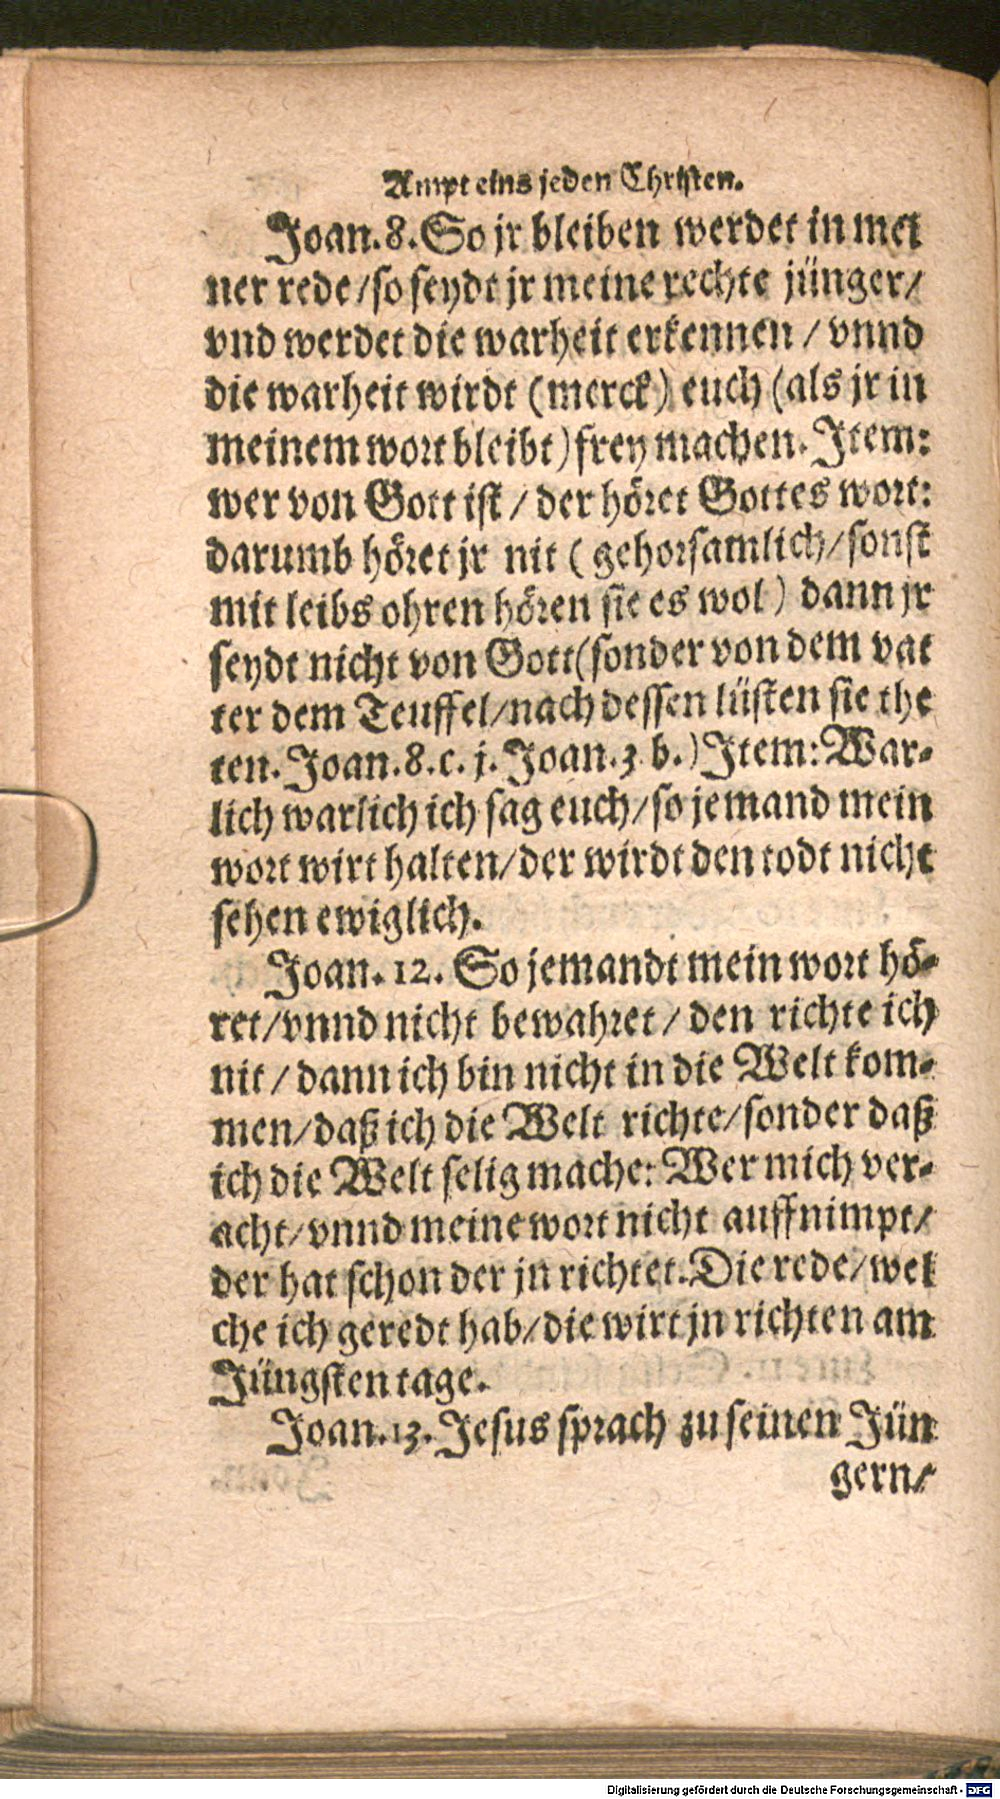 Ampt eins jeden Christen.
Joan. 8. So jr bleiben werdet in mei
ner rede / so seydt jr meine rechte jünger /
vnd werdet die warheit erkennen / vnnd
die warheit wirdt (merck) euch (als jr in
meinem wort bleibt) frey machen. Item:
wer von Gott ist / der höret Gottes wort:
darumb höret jr nit ( gehorsamlich / sonst
mit leibs ohren hören sie es wol ) dann jr
seydt nicht von Gott (sonder von dem vat
ter dem Teuffel / nach dessen lüsten sie the
ten. Joan. 8. c. j. Joan. 3 b.) Item: War-
lich warlich ich sag euch / so jemand mein
wort wirt halten / der wirdt den todt nicht
sehen ewiglich.
Joan. 12. So jemandt mein wort hö-
ret / vnnd nicht bewahret / den richte ich
nit / dann ich bin nicht in die Welt kom-
men / daß ich die Welt richte / sonder daß
ich die Welt selig mache: Wer mich ver-
acht / vnnd meine wort nicht auffnimpt /
der hat schon der jn richtet. Die rede / wel
che ich geredt hab / die wirt jn richten am
Jüngsten tage.
Joan. 13. Jesus sprach zu seinen Jün
gern /
Digitalisierung gefördert durch die Deutsche Forschungsgemeinschaft - DFG